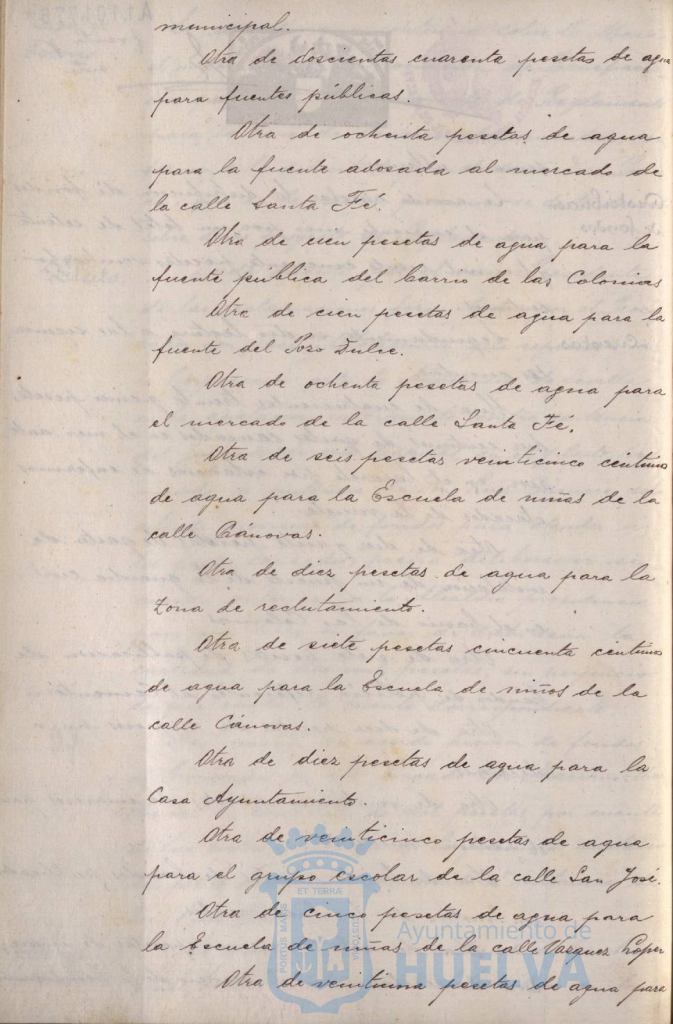 municipal.
Otra de doscientas cuarenta pesetas de agua
para fuentes públicas.
Otra de ochenta pesetas de agua
para la fuente adosada al mercado de
la calle Santa Fé.
Otra de cien pesetas de agua para la
fuente pública del barrio de las Colonias
Otra de cien pesetas de agua para la
fuente del Pozo Dulce.
Otra de ochenta pesetas de agua para
el mercado de la calle Santa Fé.
Otra de seis pesetas veinticinco céntimos
de agua para la Escuela de niñas de la
calle Cánovas.
Otra de diez pesetas de agua para la
Zona de reclutamiento.
Otra de siete pesetas cincuenta céntimos
de agua para la Escuela de niños de la
calle Cánovas.
Otra de diez pesetas de agua para la
Casa Ayuntamiento.
Otra de veinticinco pesetas de agua
para el grupo escolar de la calle San José.
Otra de cinco pesetas de agua para
la Escuela de niñas de la calle Vazquez Lopez
Otra de veintiuna pesetas de agua para
ET TERRÆ
PORTUS MARIS
CUSTODIA
Ayuntamiento de
HUELVA